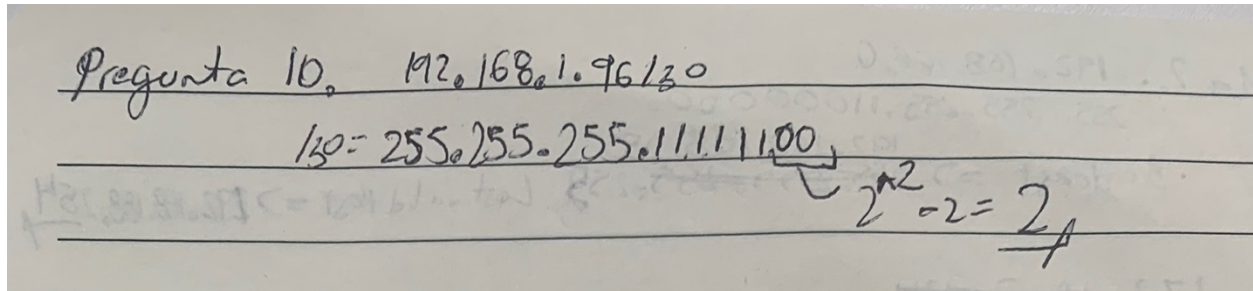 Pregunta 10. 192.168.1.96/30
/30= 255.255.255.11111100
2^2-2=2